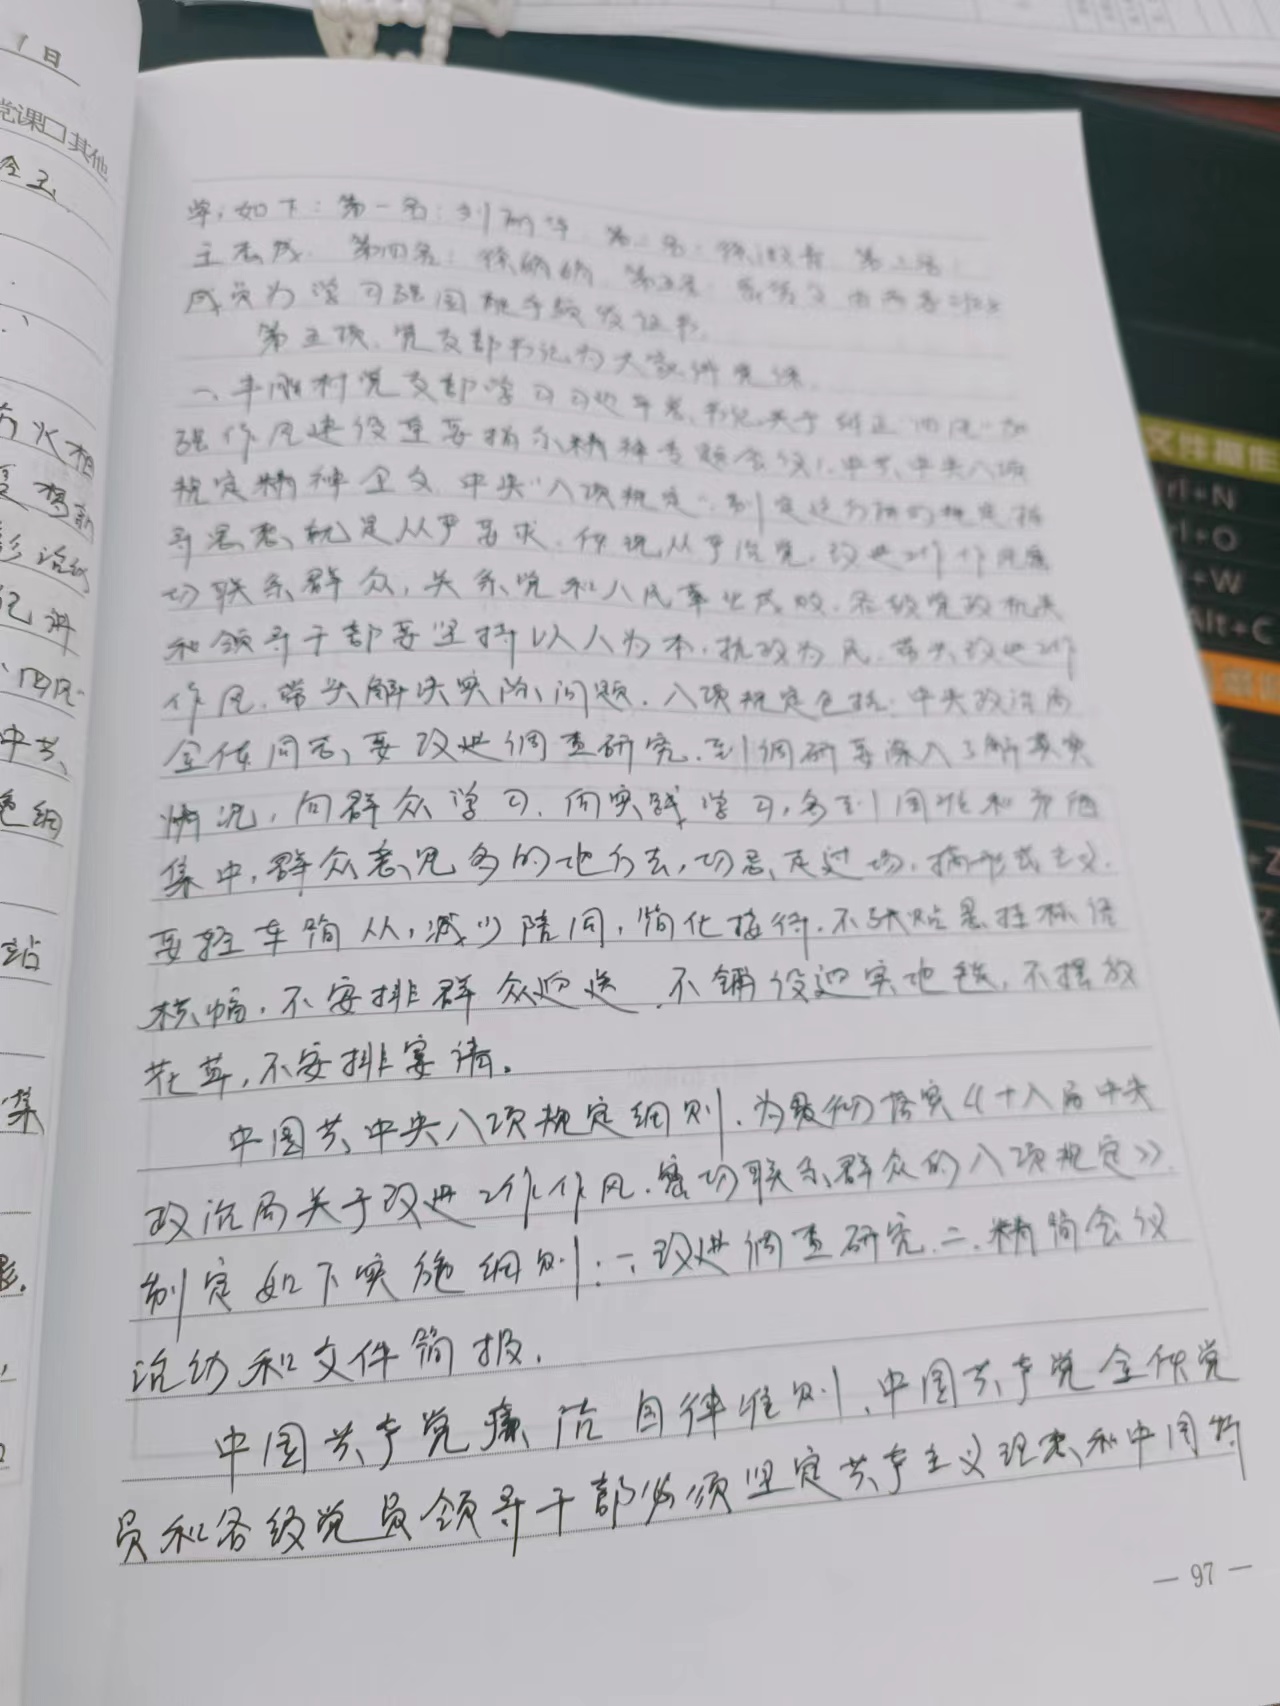 1日
党课□其他
如下：第一名：刘丽华 第二名：徐 第三名：
第四名：徐娟娟 第五名：
成员为学习强国 手颁发证书.
第五项、党支部书记为大家讲党课.
村党支部学习习近平总书记关于纠正"四风"加
强作风建设重要指示精神专题会议1.中共中央八项
规定精神全文 中央"八项规定",制定这方面的规定指
导思想就是从严要求.体现从严治党.改进工作作风密
切联系群众,关系党和人民事业成败.各级党政机关
和领导干部要坚持以人为本.执政为民.带头改进工作
作风.带头解决实际问题.八项规定包括:中央政治局
全体同志,要改进调查研究.到调研要深入了解真实
情况,向群众学习.向实践学习,多到困难和矛盾
集中,群众意见多的地方去,切忌走过场.搞形式主义.
要轻车简从,减少陪同,简化接待.不张贴悬挂标语
横幅.不安排群众迎送.不铺设迎宾地毯,不摆放
花草,不安排宴请。
中国共中央八项规定细则.为贯彻落实《十八届中央
政治局关于改进工作作风.密切联系群众的八项规定》
制定如下实施细则:一.改进调查研究.二.精简会议
活动和文件简报.
中国共产党廉洁自律准则.中国共产党全体党
员和各级党员领导干部必须坚定共产主义理想和中国特
— 97 —
文件操作
Ctrl+N
Ctrl+O
+W
Alt+C